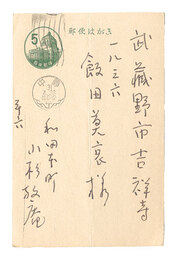 郵便はがき
武藏野市吉祥寺
一八三六
飯田莫哀様
和田本町
小杉放庵
5